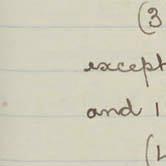 (3
except
and 1
(